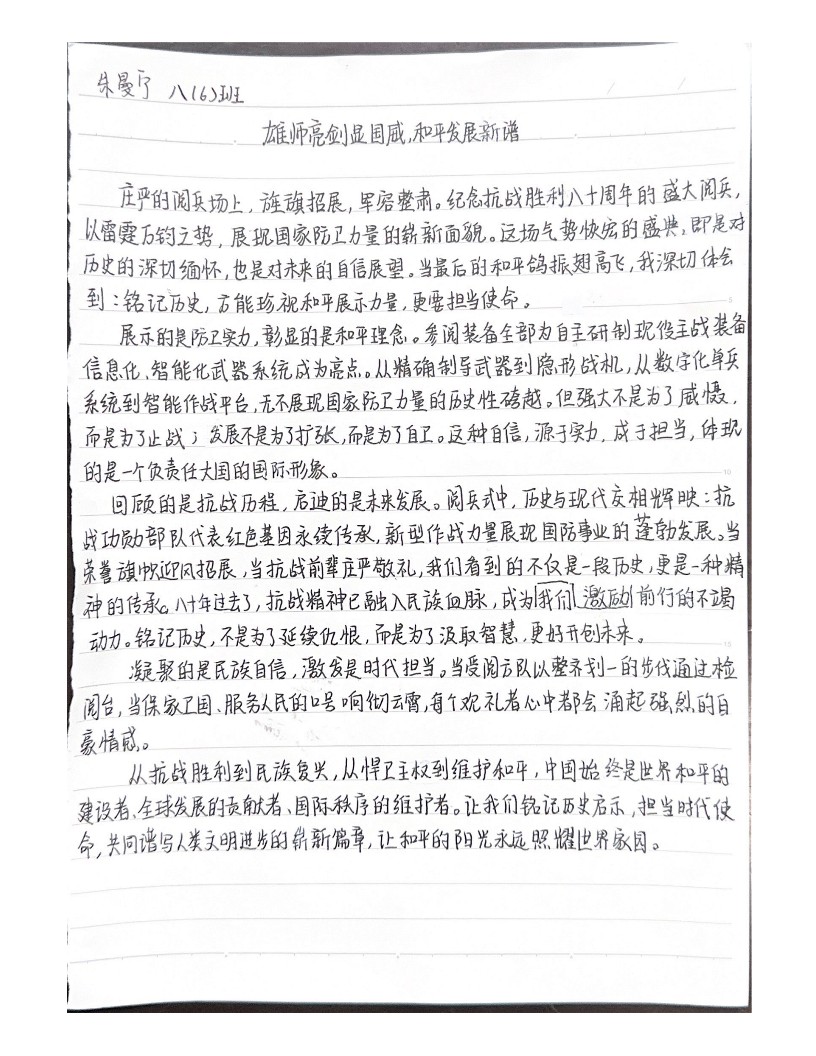 朱曼宁 八(6)班
雄师亮剑显国威,和平发展新谱
庄严的阅兵场上,旌旗招展,军容整肃。纪念抗战胜利八十周年的盛大阅兵,
以雷霆万钧之势,展现国家防卫力量的崭新面貌。这场气势恢宏的盛典,即是对
历史的深切缅怀,也是对未来的自信展望。当最后的和平鸽振翅高飞,我深切体会
到:铭记历史,方能珍视和平展示力量,更要担当使命。
展示的是防卫实力,彰显的是和平理念。参阅装备全部为自主研制现役主战装备
信息化、智能化武器系统成为亮点。从精确制导武器到隐形战机,从数字化单兵
系统到智能作战平台,无不展现国家防卫力量的历史性跨越。但强大不是为了威慑,
而是为了止战;发展不是为了扩张,而是为了自卫。这种自信,源于实力,成于担当,体现
的是一个负责任大国的国际形象。
回顾的是抗战历程,启迪的是未来发展。阅兵式中,历史与现代交相辉映:抗
战功勋部队代表红色基因永续传承,新型作战力量展现国防事业的蓬勃发展。当
荣誉旗帜迎风招展,当抗战前辈庄严敬礼,我们看到的不仅是一段历史,更是一种精
神的传承。八十年过去了,抗战精神已融入民族血脉,成为我们激励前行的不竭
动力。铭记历史,不是为了延续仇恨,而是为了汲取智慧,更好开创未来。
凝聚的是民族自信,激发是时代担当。当受阅方队以整齐划一的步伐通过检
阅台,当保家卫国、服务人民的口号响彻云霄,每个观礼者心中都会涌起强烈的自
豪情感。
从抗战胜利到民族复兴,从悍卫主权到维护和平,中国始终是世界和平的
建设者、全球发展的贡献者、国际秩序的维护者。让我们铭记历史启示,担当时代使
命,共同谱写人类文明进步的崭新篇章,让和平的阳光永远照耀世界家园。